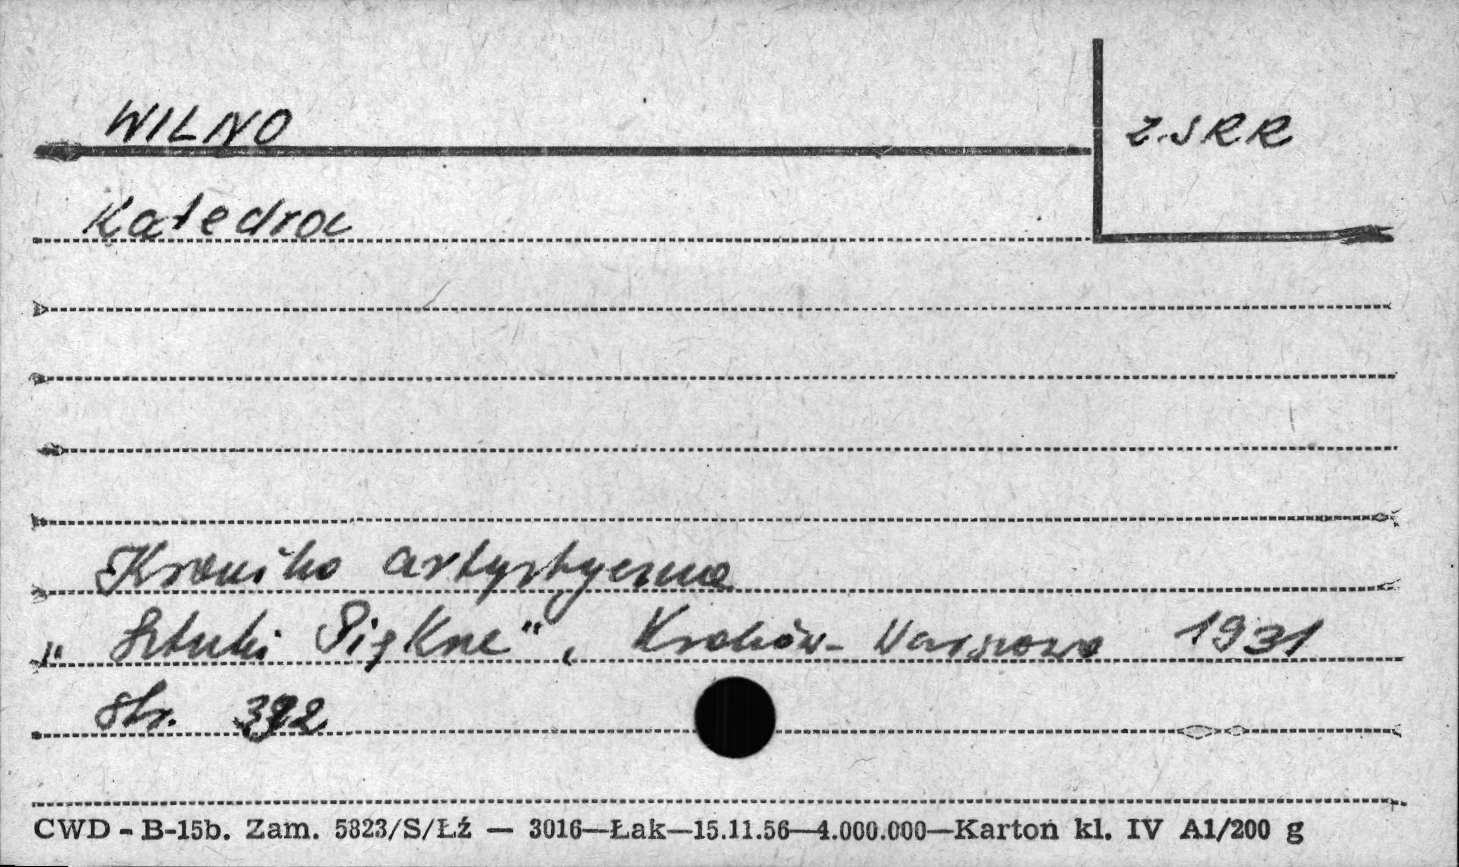 WILNO
Z.SRR
Katedra
Kronika artystyczna
„Sztuki Piękne", Kraków-Warszawa 1931
str. 392
CWD - B-15b. Zam. 5823/S/Łź — 3016—Łak—15.11.56—4.000.000—Karton kl. IV A1/200 g